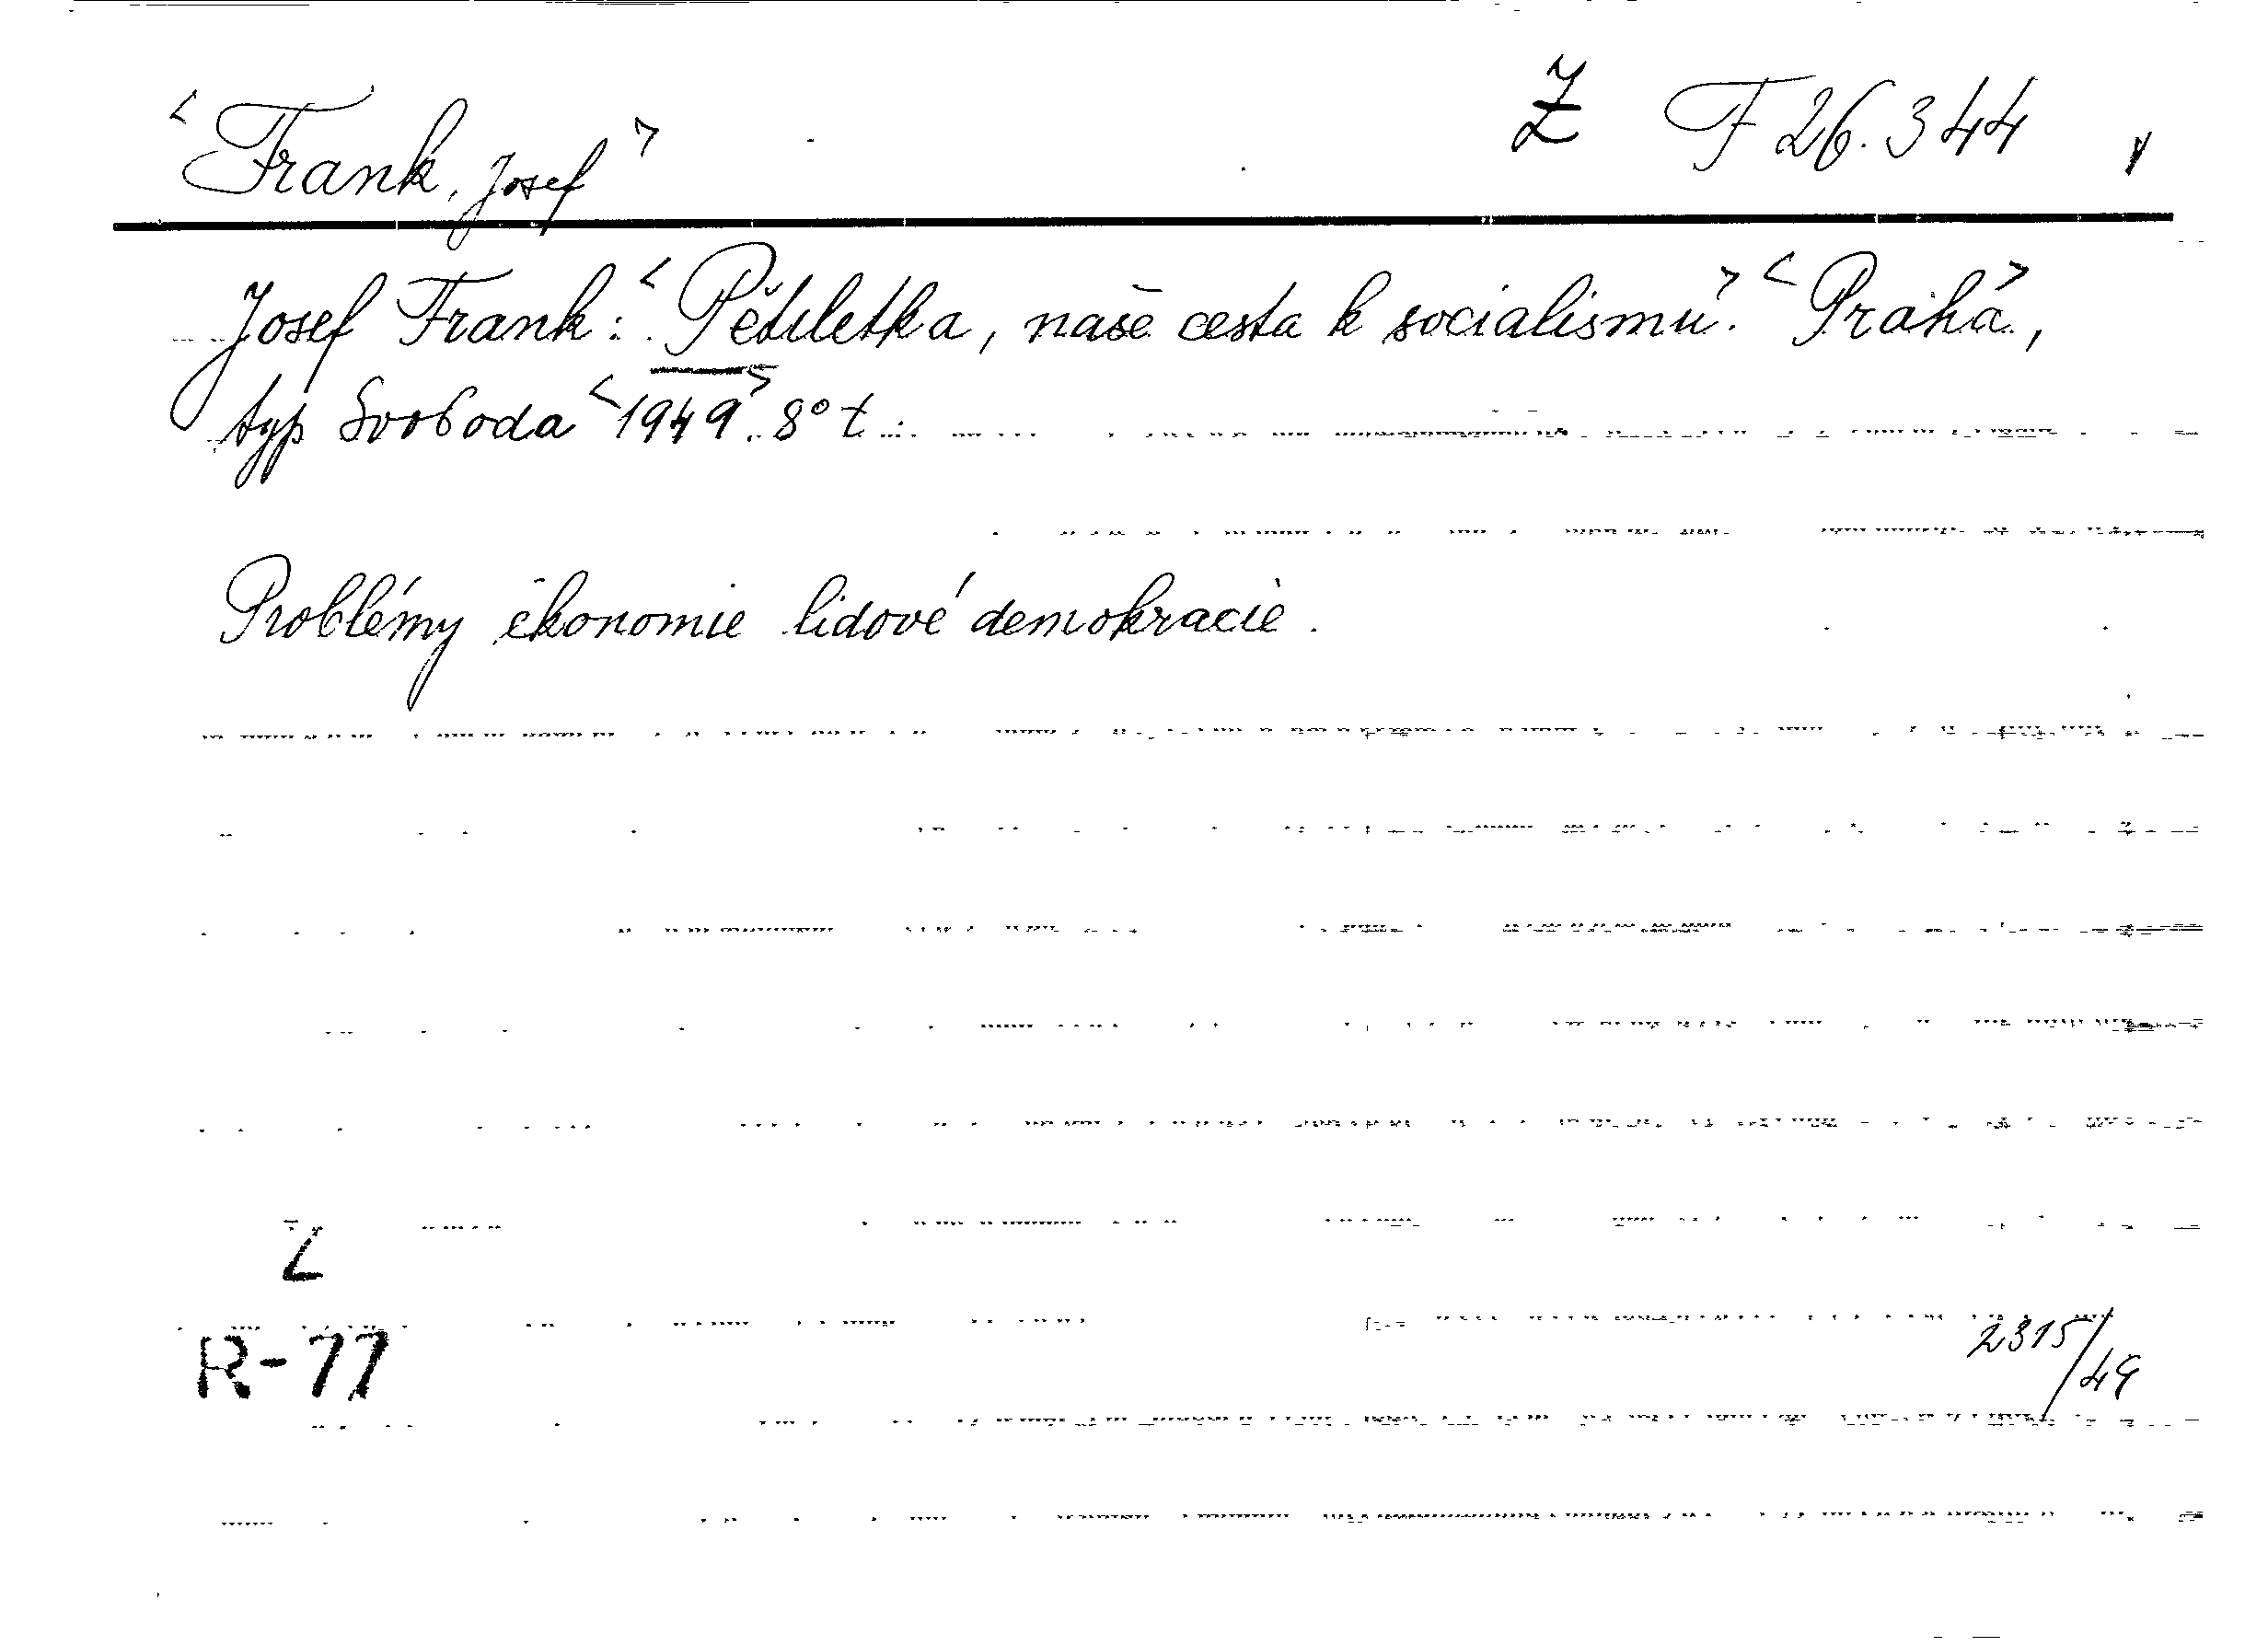 <Frank, Josef> Ƶ F 26.344
Josef Frank: <Pětiletka, naše cesta k socialismu>. <Praha>,
typ Svoboda <1949>. 8° t.
Problémy ekonomie lidové demokracie.
Z
R-77
2315/49